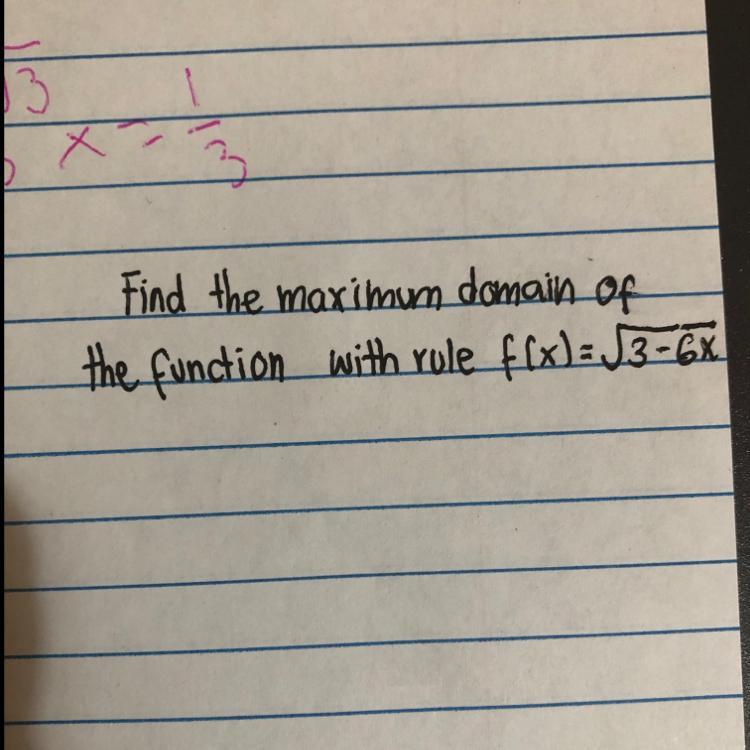 √3
x = 1/3
Find the maximum domain of
the function with rule f(x)=√3-6x